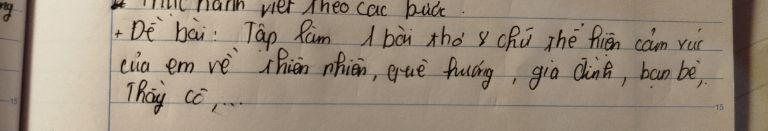 Thực hành viết theo các bước.
+ Đề bài: Tập làm 1 bài thơ 8 chữ thể hiện cảm xúc
của em về thiên nhiên, quê hương, gia đình, bạn bè,
Thầy cô,...
15
15